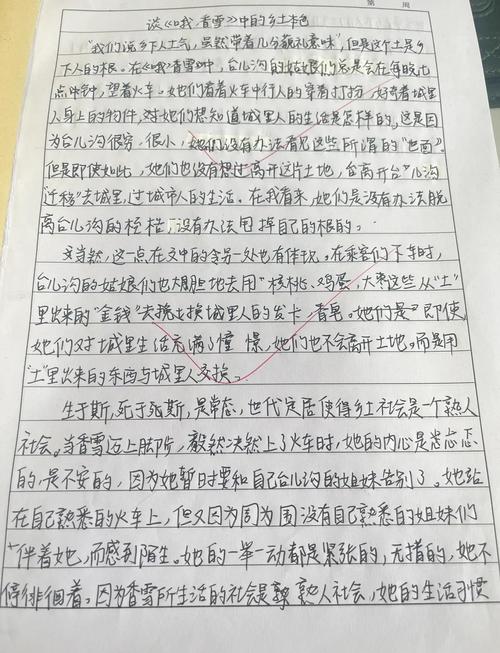 第 周
谈《哦,香雪》中的乡土本色
"我们说乡下人土气,虽然带着几分藐礼意味",但是这个土是乡
下人的根。在《哦,香雪》中,台儿沟的姑娘们总是会在每晚七
点中,望着火车。她们看着火车中行人的穿着打扮,好奇着城里
人身上的物件,对她们想知道城里人的生活是怎样的。这是因
为台儿沟很穷,很小,她们没有办法看见这些所谓的"世面"。
但是即使如此,她们也没有想过离开这片土地,台离开台儿沟
"迁移"去城里,过城市人的生活。在我看来,她们是没有办法脱
离台儿沟的桎梏,没有办法甩掉自己的根的。
又当然,这一点在文中的令另一处也有体现。在乘客们下车时,
台儿沟的姑娘们也大胆地去用"核桃、鸡蛋,大枣这些从"土"
里出来的"金钱"去换城里人的发卡、香皂。她们是即使
她们对城里生活充满了憧憬,她们也不会离开土地。而是用
"土"里出来的东西与城里人交换。
生于斯,死于死斯,是常态,世代定居使得乡土社会是个熟人
社会。当香雪迈上台阶,毅然决然上了火车时,她的内心是忐忑
的,是不安的,因为她暂时要和自己台儿沟的姐妹告别了。她站
在自己熟悉的火车上,但又因为周为围没有自己熟悉的姐妹们
伴着她,而感到陌生。她的一举一动都是紧张的,无措的,她不
停徘徊着。因为香雪所生活的社会是熟人社会,她的生活习惯